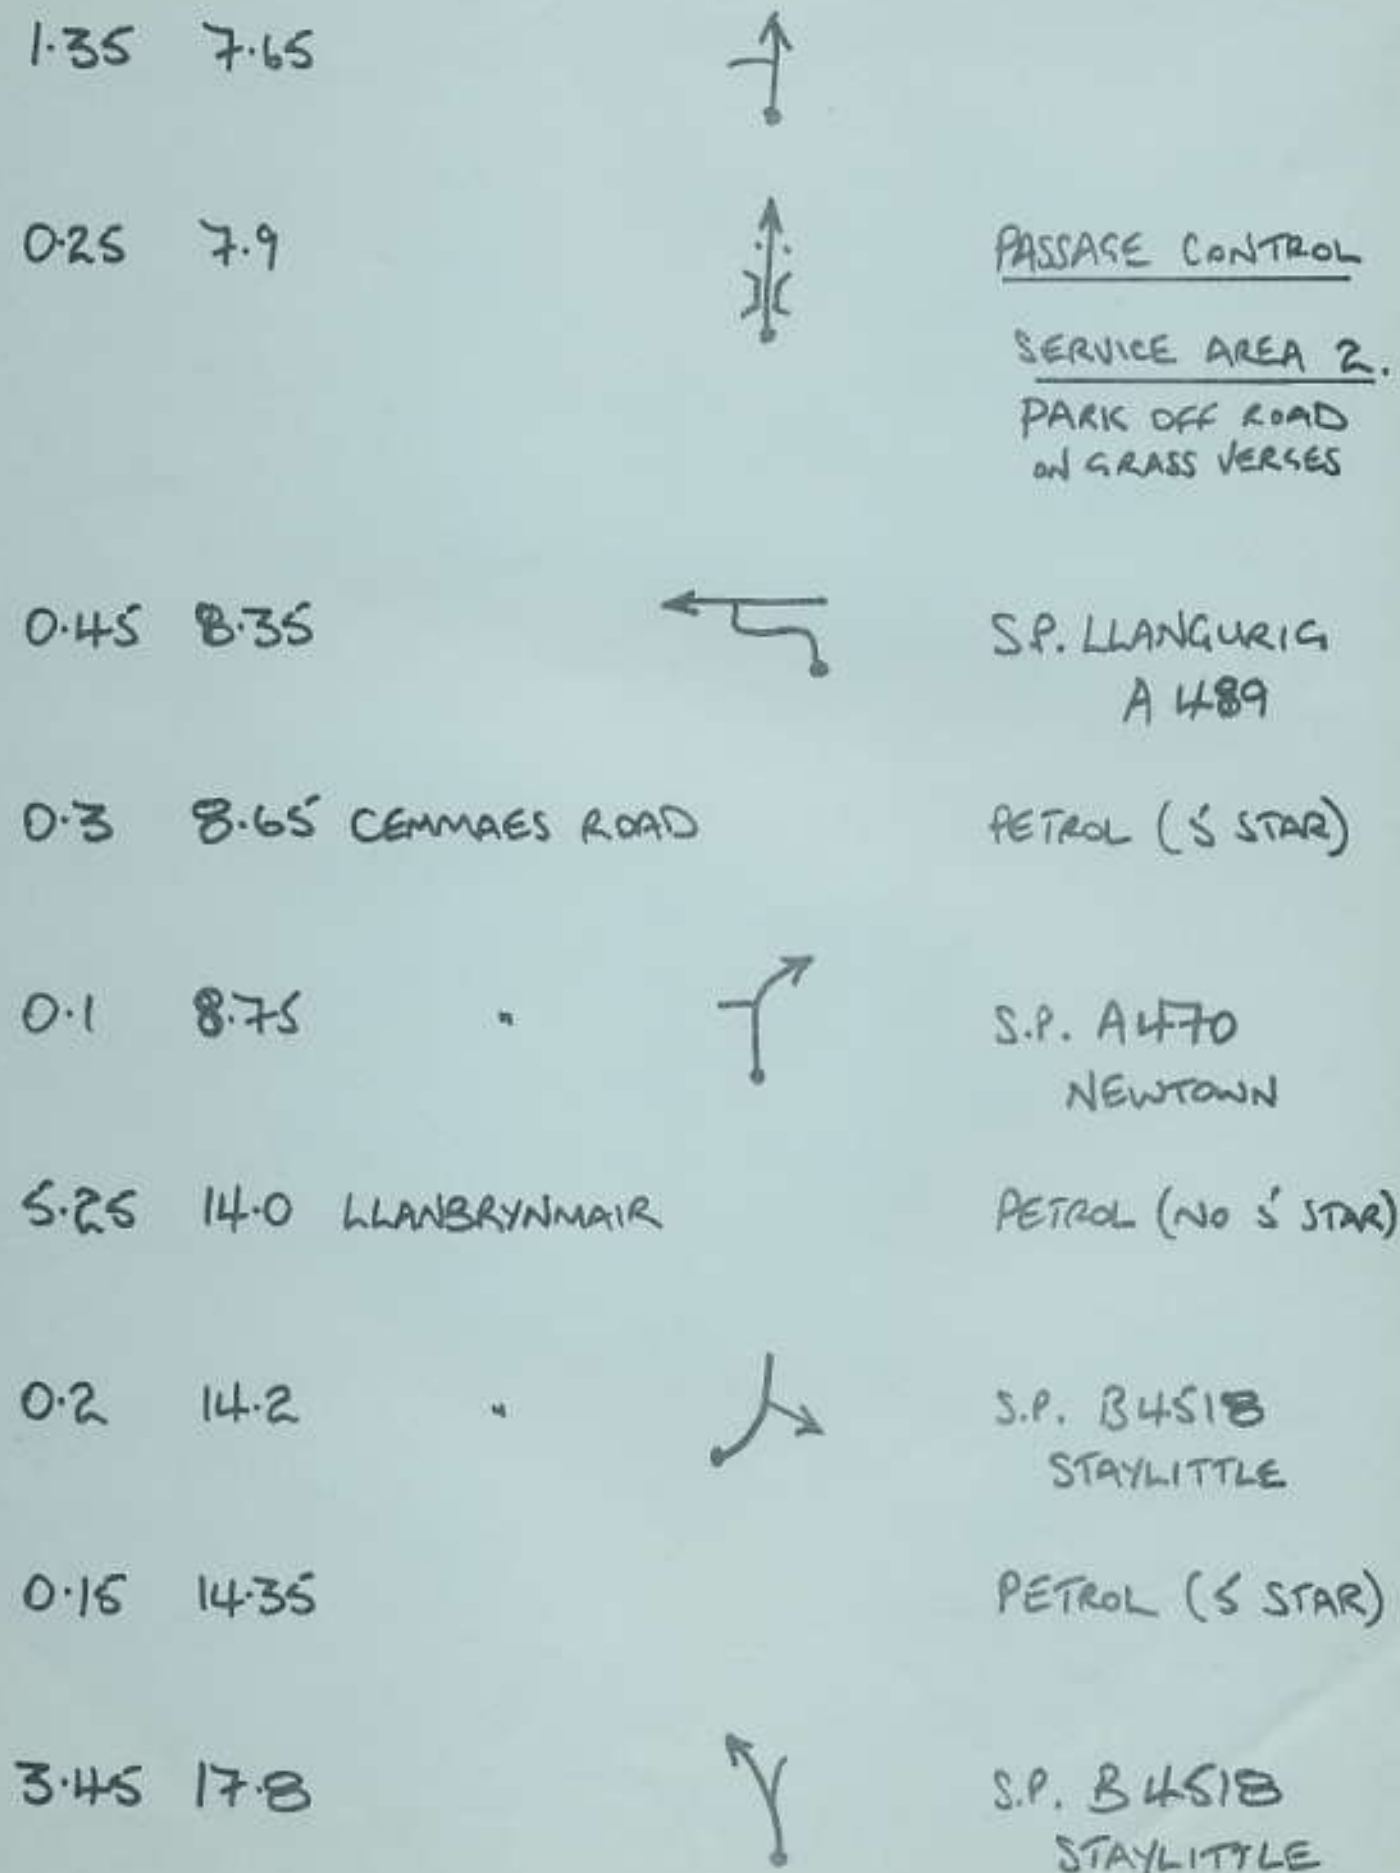 1.35 7.65
0.25 7.9 PASSAGE CONTROL
SERVICE AREA 2.
PARK OFF ROAD
ON GRASS VERGES
0.45 8.35 S.P. LLANGURIG
A 489
0.3 8.65 CEMMAES ROAD PETROL (5 STAR)
0.1 8.75 " S.P. A470
NEWTOWN
5.25 14.0 LLANBRYNMAIR PETROL (NO 5 STAR)
0.2 14.2 " S.P. B4518
STAYLITTLE
0.15 14.35 PETROL (5 STAR)
3.45 17.8 S.P. B4518
STAYLITTLE